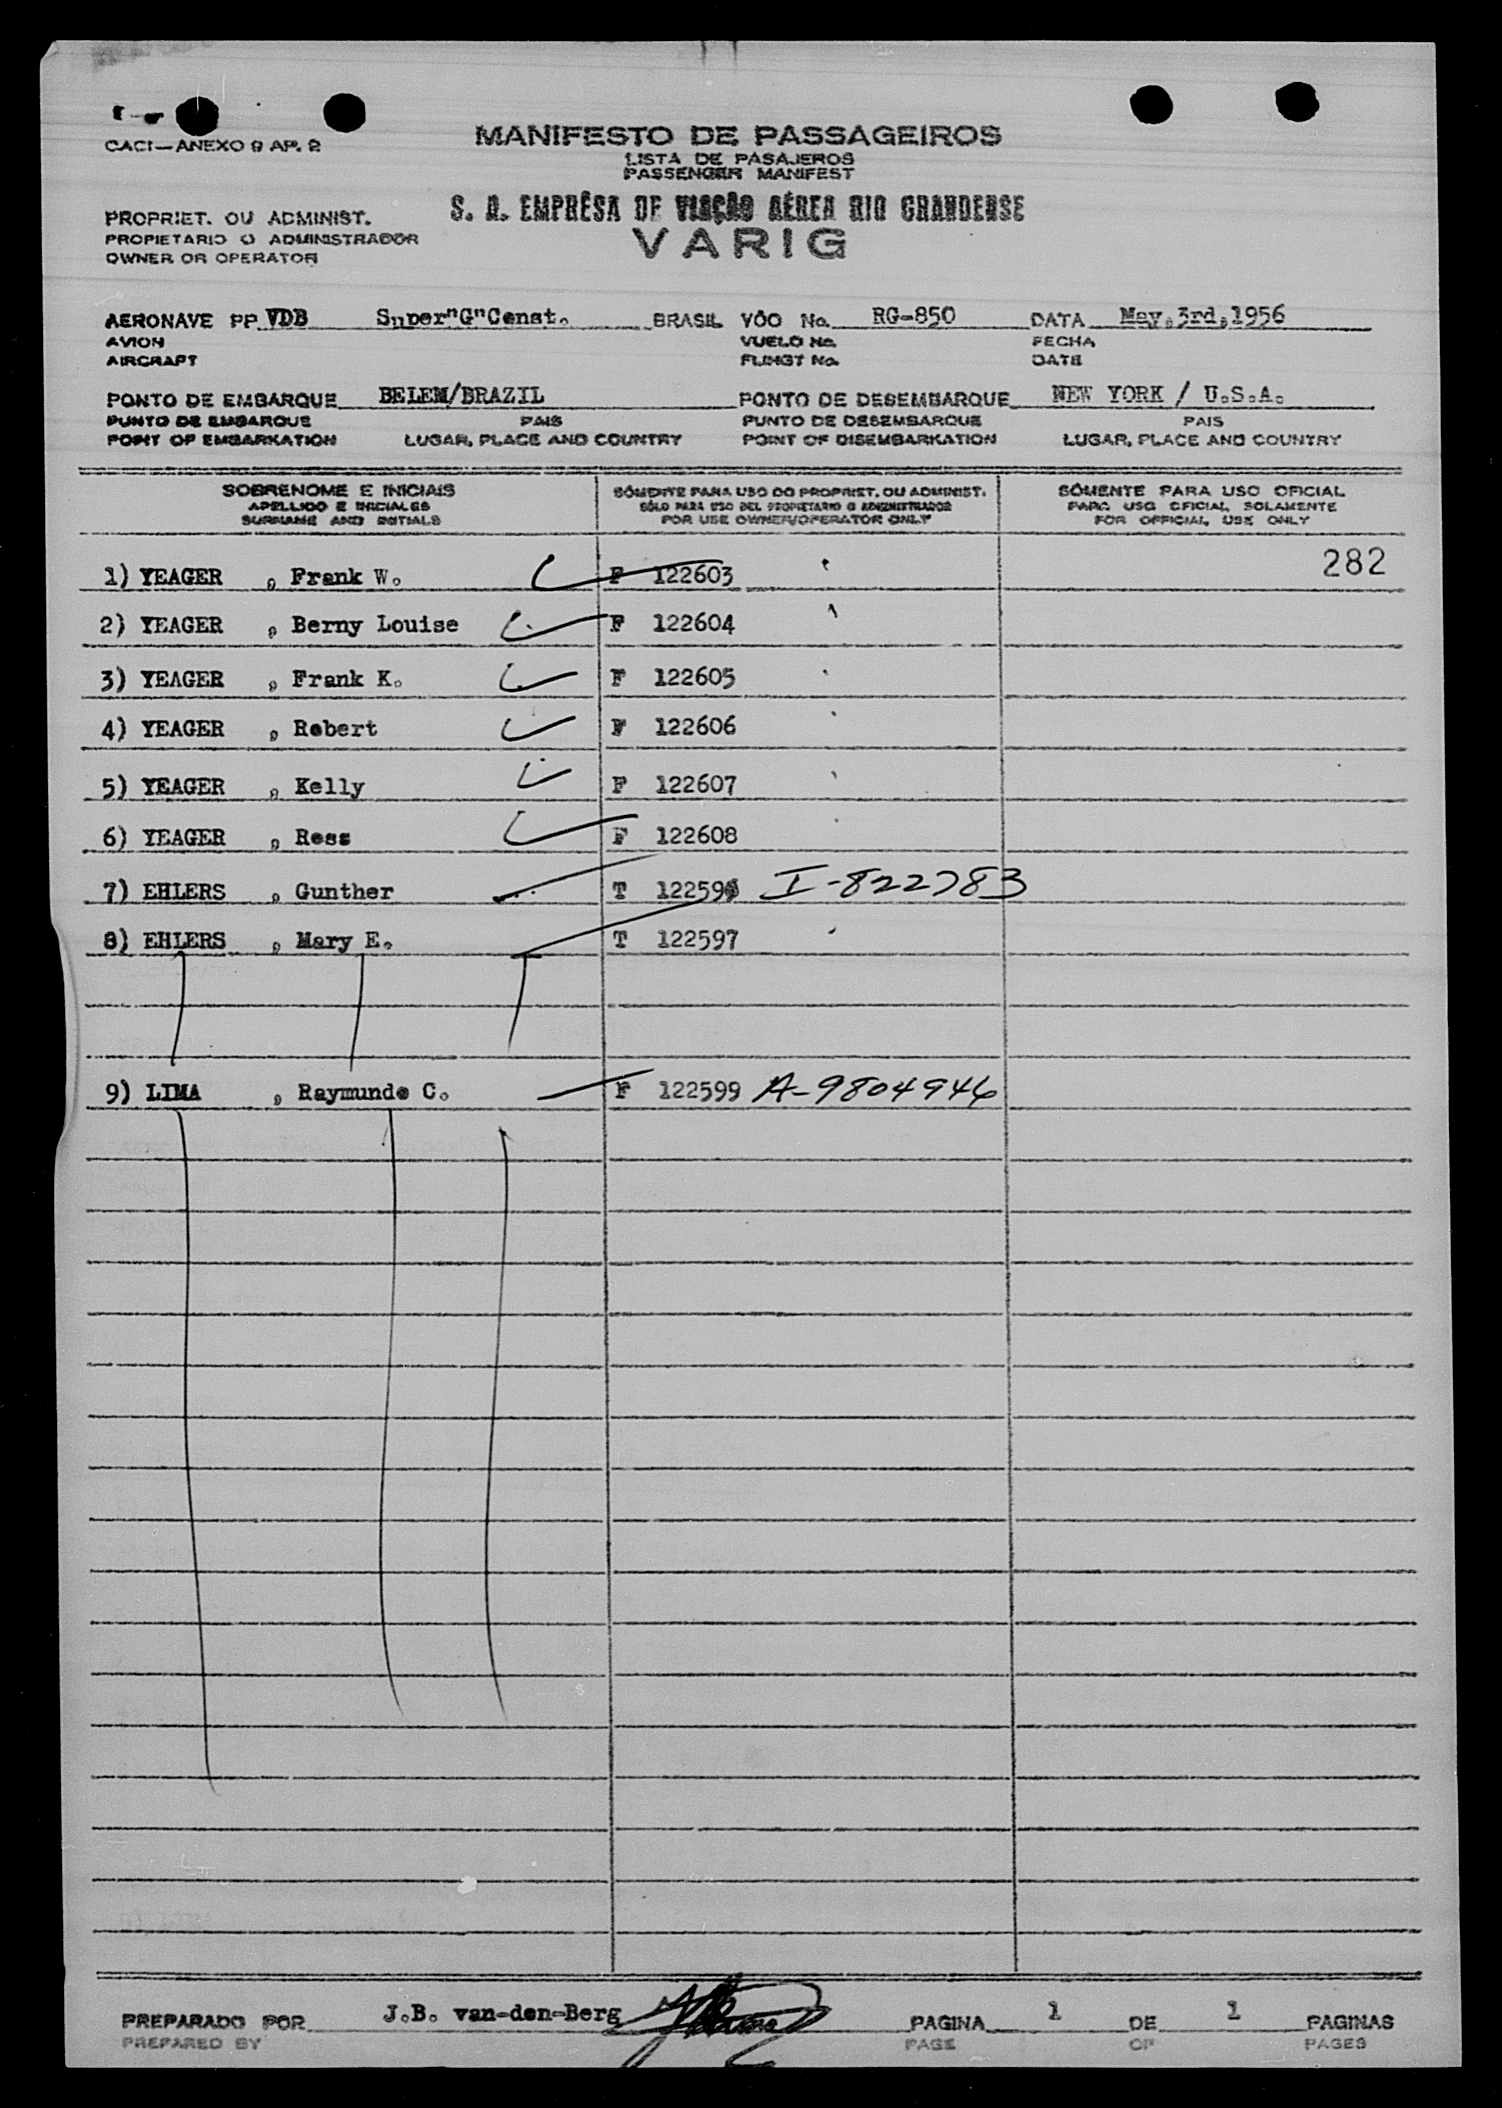 CACI—ANEXO 9 AP. 2
MANIFESTO DE PASSAGEIROS
LISTA DE PASAJEROS
PASSENGER MANIFEST
S. A. EMPRÊSA DE VIAÇÃO AÉREA RIO GRANDENSE
VARIG
PROPRIET. OU ADMINIST.
PROPIETARIO O ADMINISTRADOR
OWNER OR OPERATOR
AERONAVE PP VDB Super"G"Const. BRASIL VÔO No. RG-850 DATA May,3rd,1956
AVION VUELO No. FECHA
AIRCRAFT FLIHGT No. DATE
PONTO DE EMBARQUE BELEM/BRAZIL PONTO DE DESEMBARQUE NEW YORK / U.S.A.
PUNTO DE EMBARQUE PAIS PUNTO DE DESEMBARQUE PAIS
POINT OF EMBARKATION LUGAR, PLACE AND COUNTRY POINT OF DISEMBARKATION LUGAR, PLACE AND COUNTRY
SOBRENOME E INICIAIS SÓMENTE PARA USO DO PROPRIET. OU ADMINIST. SÓMENTE PARA USO OFICIAL
APELLIDO E INICIALES SÓLO PARA USO DEL PROPIETARIO O ADMINISTRADOR PARA USO OFICIAL SOLAMENTE
SURNAME AND INITIALS FOR USE OWNER/OPERATOR ONLY FOR OFFICIAL USE ONLY
282
1) YEAGER , Frank W. F 122603
2) YEAGER , Berny Louise F 122604
3) YEAGER , Frank K. F 122605
4) YEAGER , Robert F 122606
5) YEAGER , Kelly F 122607
6) YEAGER , Ross F 122608
7) EHLERS , Gunther T I-822783
8) EHLERS , Mary E. T 122597
9) LIMA , Raymundo C. F 122599 A-9804946
PREPARADO POR J.B. van-den-Berg PAGINA 1 DE 1 PAGINAS
PREPARED BY PAGE OF PAGES